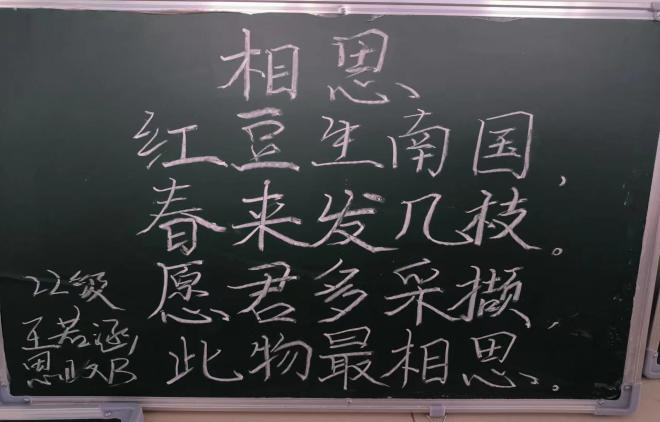 相思
红豆生南国，
春来发几枝。
愿君多采撷，
此物最相思。
22级
王若涵
思政B